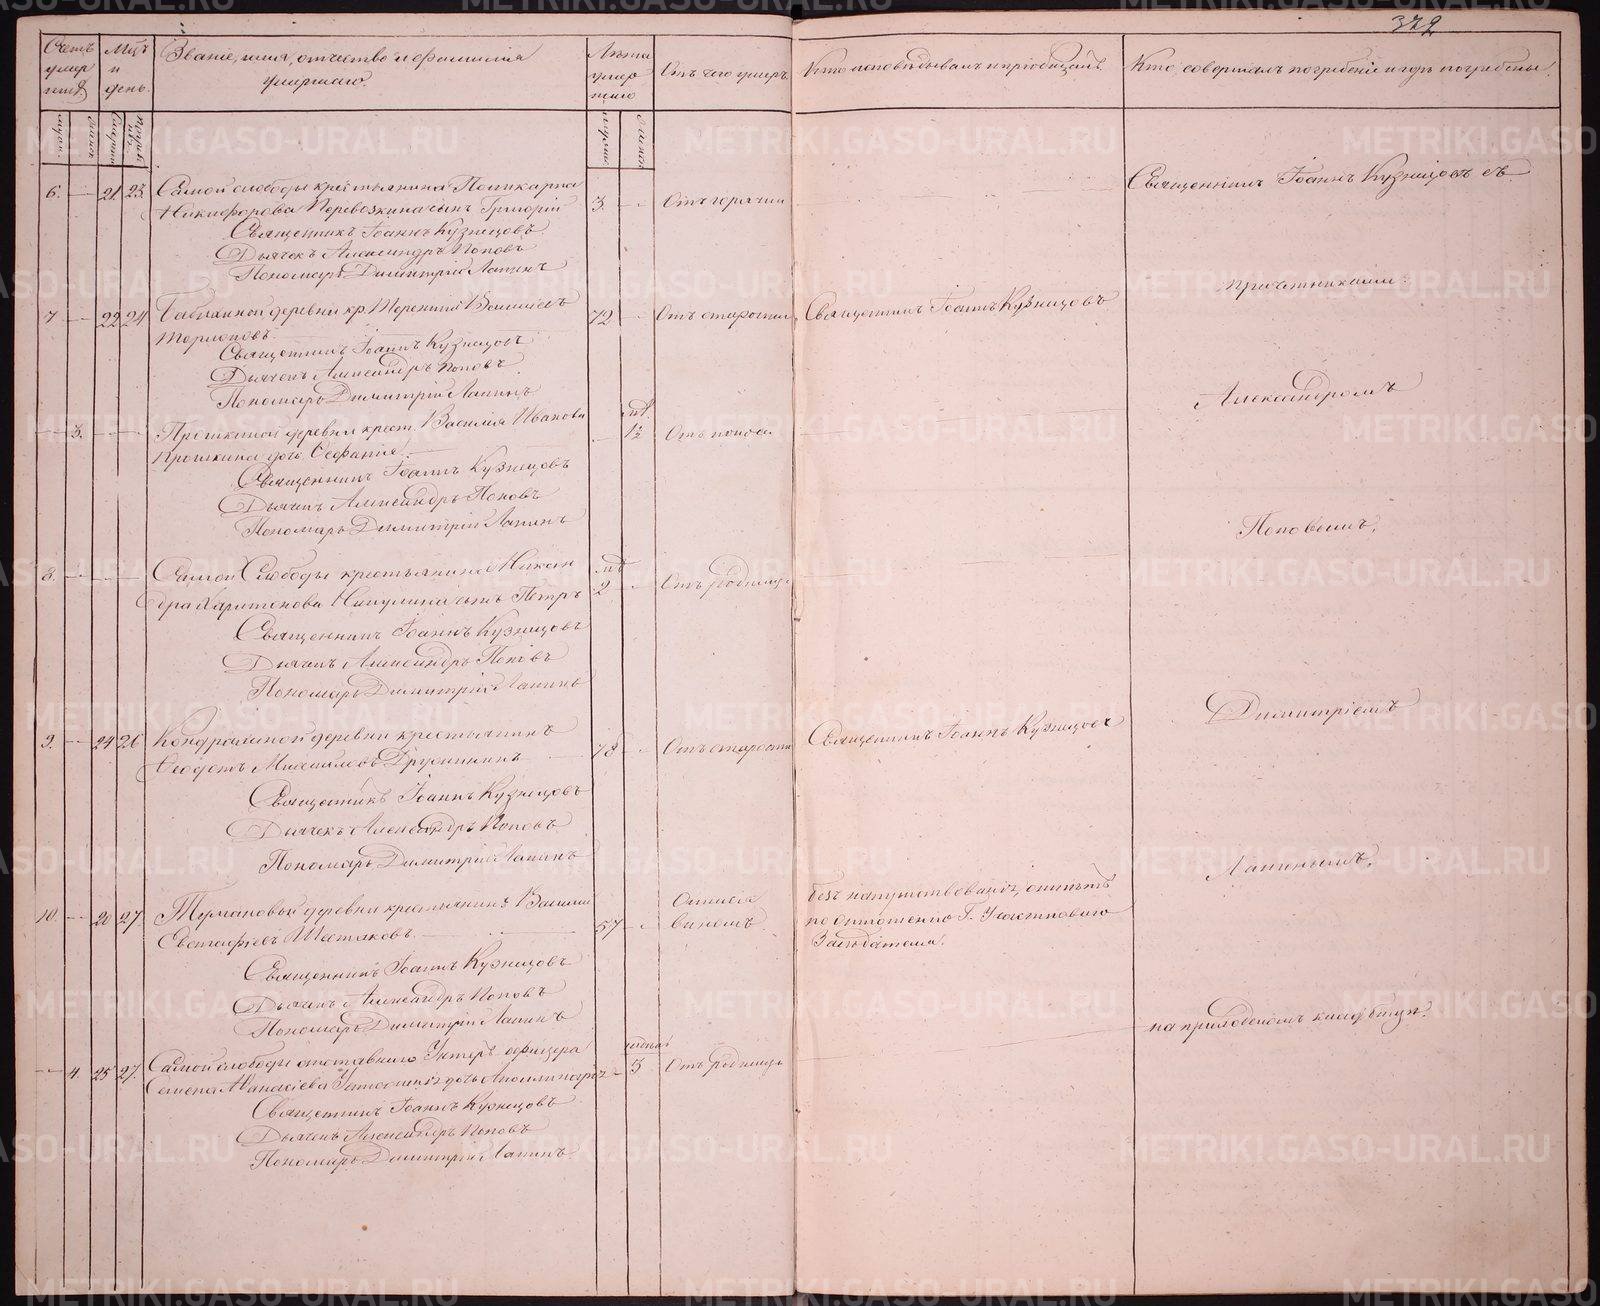 379
Счетъ умер шихъ
Мцъ и день.
Званіе, имя, отчество и фамилія
умершаго.
Лѣта умер шаго
Отъ чего умеръ.
Кто исповѣдывалъ и пріобщалъ.
Кто совершалъ погребеніе и гдѣ погребены.
6. 21. 23. Самой слободы крестьянина Поликарпа
Никифорова Перевозкина сынъ Григорій 3. Отъ горячки
Священникъ Іоаннъ Кузнецовъ съ
Священникъ Іоаннъ Кузнецовъ.
Дьячекъ Александръ Поповъ
Пономарь Димитрій Лапинъ
причетниками:
7 22 24 деревни кр. Терентій Васильевъ 72 Отъ старости Священникъ Іоаннъ Кузнецовъ
Священникъ Іоаннъ Кузнецовъ
Дьячекъ Александръ Поповъ.
Пономарь Димитрій Лапинъ
Александромъ
3. Прошкиной деревни крест. Василія Иванова 1½ Отъ поноса
Прошкина дочь
Священникъ Іоаннъ Кузнецовъ
Дьячекъ Александръ Поповъ
Пономарь Димитрій Лапинъ
Поповымъ,
8. Самой Слободы крестьянина Никан
дра Харитонова сынъ Петръ 2 Отъ родимца
Священникъ Іоаннъ Кузнецовъ
Дьячекъ Александръ Поповъ
Пономарь Димитрій Лапинъ
Димитріемъ
9. 24 26 деревни крестьянинъ
Ѳеодотъ Михайловъ 78 Отъ старости Священникъ Іоаннъ Кузнецовъ
Священникъ Іоаннъ Кузнецовъ
Дьячекъ Александръ Поповъ
Пономарь Димитрій Лапинъ
Лапинымъ,
10. 20 27. Тумановой деревни крестьянинъ Василій
Евстафіевъ Шестаковъ. 57 Опился виномъ.
безъ напутствованія, отпѣтъ
по отношенію Г. Участковаго
Засѣдателя.
Священникъ Іоаннъ Кузнецовъ
Дьячекъ Александръ Поповъ
Пономарь Димитрій Лапинъ
на приходскомъ кладбищѣ.
4. 25 27. Самой слободы отставнаго Унтеръ офицера
Семена Аѳанасіева дочь 5 Отъ родимца
Священникъ Іоаннъ Кузнецовъ
Дьячекъ Александръ Поповъ
Пономарь Димитрій Лапинъ
METRIKI.GASO-URAL.RU